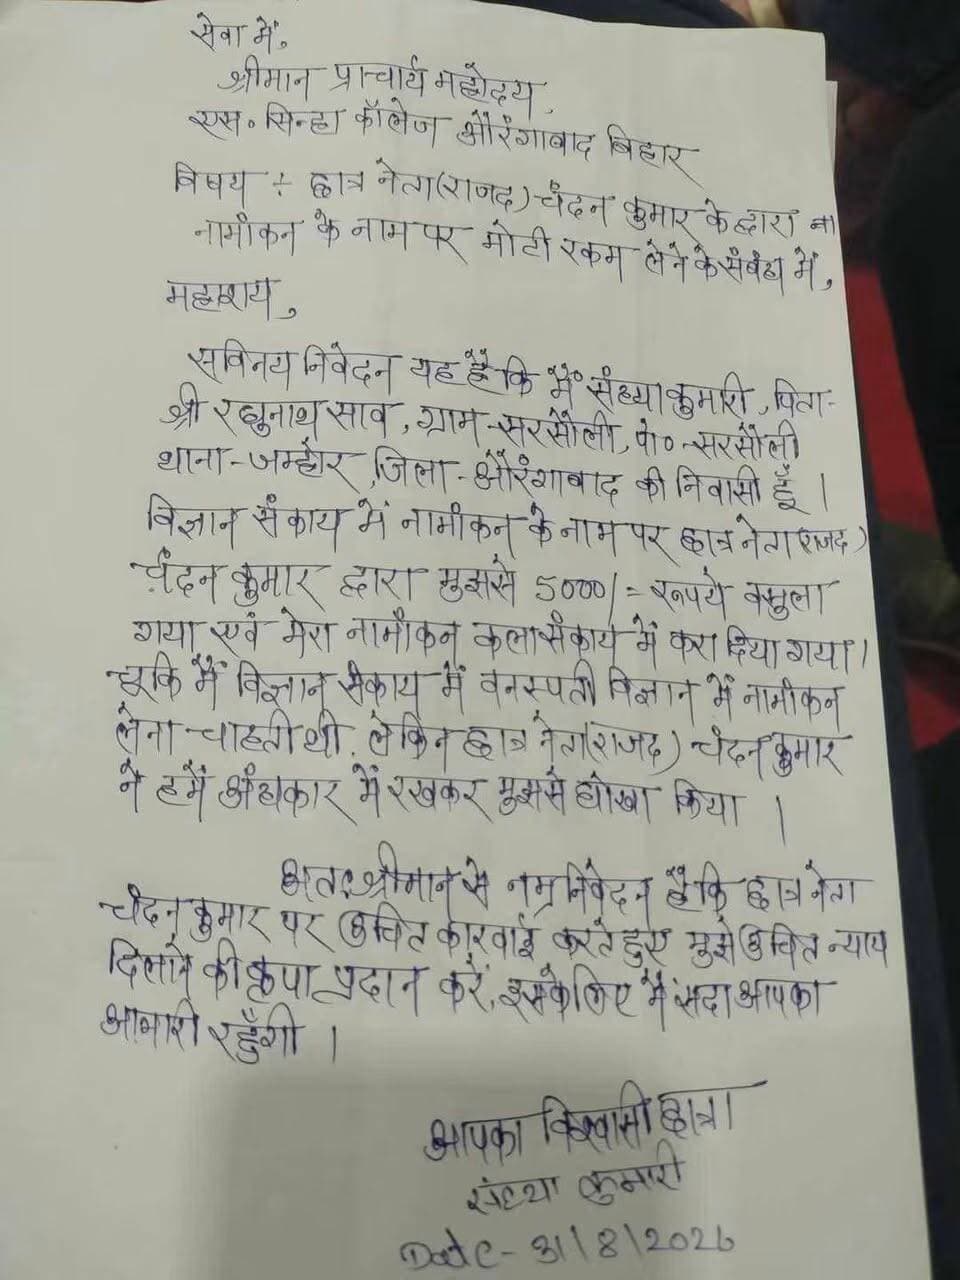 सेवा में,
श्रीमान प्राचार्य महोदय,
एस० सिन्हा कॉलेज औरंगाबाद बिहार
विषय ÷ छात्र नेता(राजद) चंदन कुमार के द्वारा ना
नामांकन के नाम पर मोटी रकम लेने के संबंध में,
महाशय,
सविनय निवेदन यह है कि मैं संध्या कुमारी, पिता-
श्री रघुनाथ साव, ग्राम-सरसौली, पो०-सरसौली
थाना-जम्होर, जिला-औरंगाबाद की निवासी हूँ।
विज्ञान संकाय में नामांकन के नाम पर छात्र नेता(राजद)
चंदन कुमार द्वारा मुझसे 5000/= रूपये वसुला
गया एवं मेरा नामांकन कला संकाय में करा दिया गया।
चूकि मैं विज्ञान संकाय में वनस्पती विज्ञान में नामांकन
लेना चाहती थी, लेकिन छात्र नेता(राजद) चंदन कुमार
ने हमें अंधकार में रखकर मुझसे धोखा किया।
अतः श्रीमान से नम्र निवेदन है कि छात्र नेता
चंदन कुमार पर उचित कारवाई करते हुए मुझे उचित न्याय
दिलाने की कृपा प्रदान करें, इसके लिए मैं सदा आपका
आभारी रहुँगी।
आपका विश्वासी छात्रा
संध्या कुमारी
Date - 31/8/2026